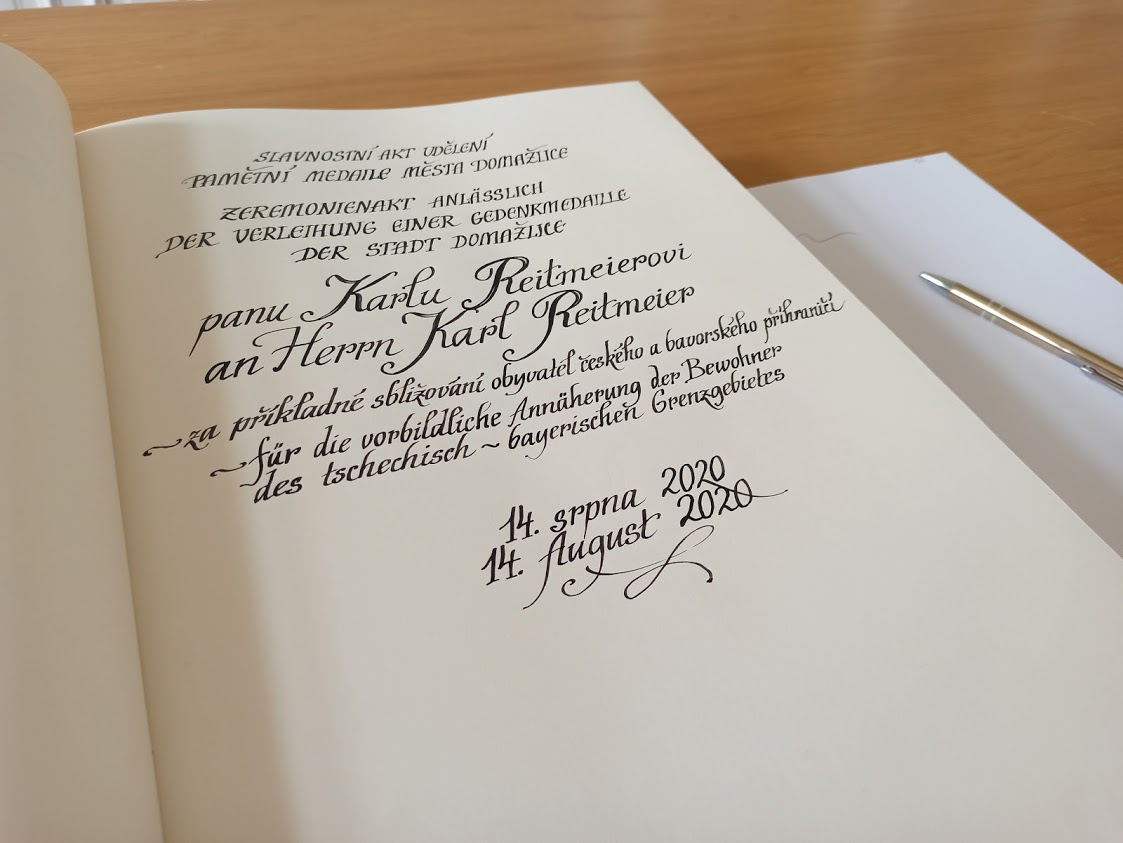 SLAVNOSTNÍ AKT UDĚLENÍ
PAMĚTNÍ MEDAILE MĚSTA DOMAŽLICE
ZEREMONIENAKT ANLÄSSLICH
DER VERLEIHUNG EINER GEDENKMEDAILLE
DER STADT DOMAŽLICE
panu Karlu Reitmeierovi
an Herrn Karl Reitmeier
~ za příkladné sbližování obyvatel českého a bavorského příhraničí
~ für die vorbildliche Annäherung der Bewohner
des tschechisch ~ bayerischen Grenzgebietes
14. srpna 2020
14. August 2020